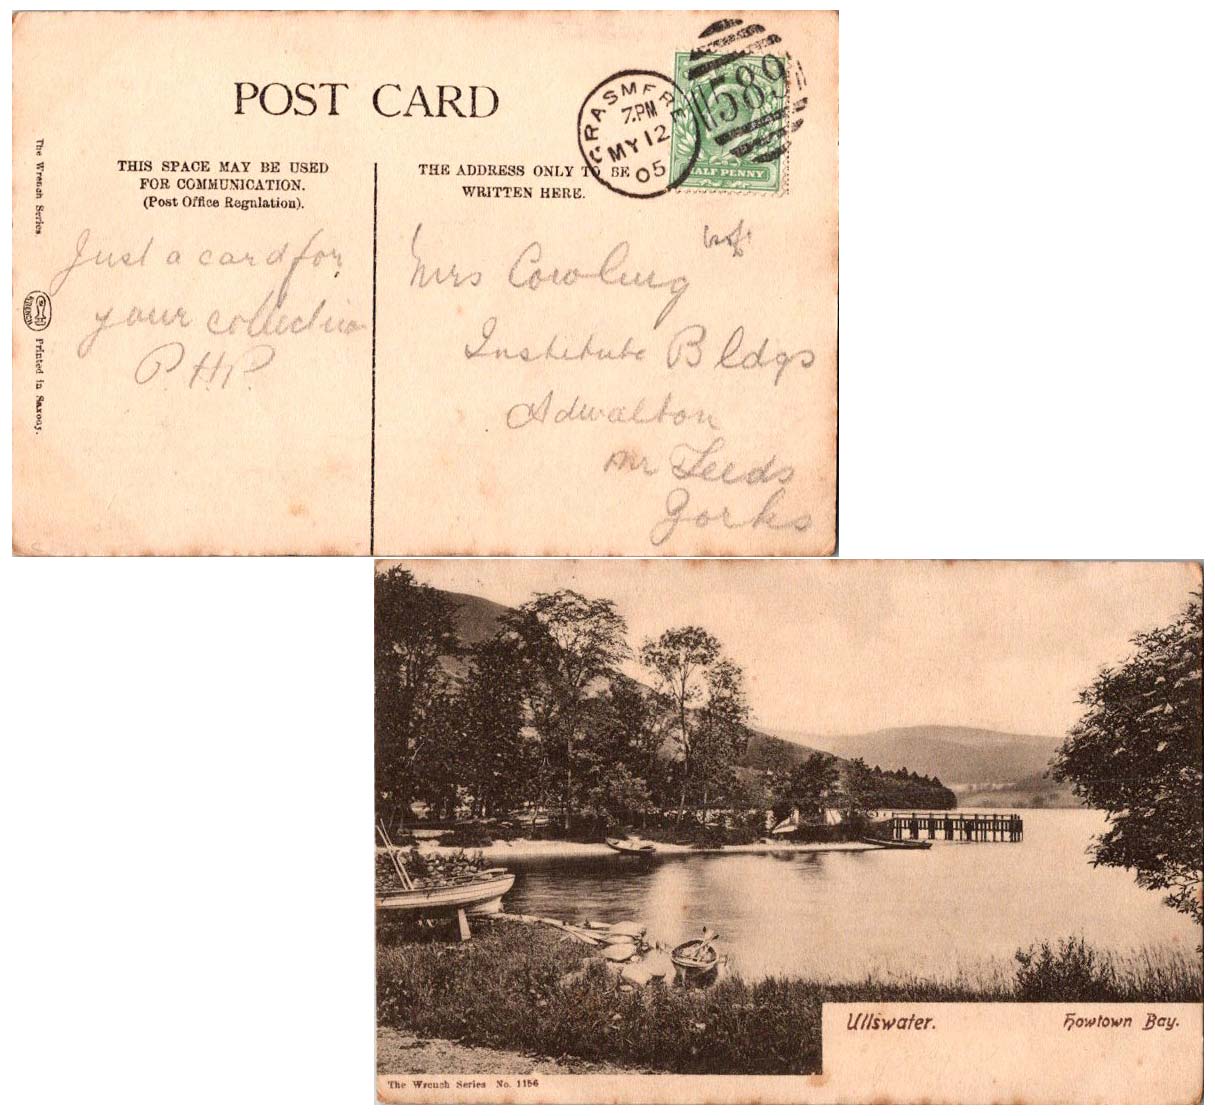 POST CARD
THIS SPACE MAY BE USED
FOR COMMUNICATION.
(Post Office Regulation).
THE ADDRESS ONLY TO BE
WRITTEN HERE.
GRASMERE
7.PM
MY 12
05
1589
HALF PENNY
The Wrench Series.
WRENCH
Printed in Saxony.
Just a card for
your collection
P.H.P.
Mrs Cowling
Institute Bldgs
Adwalton
nr Leeds
Yorks
Ullswater. Howtown Bay.
The Wrench Series No. 1156